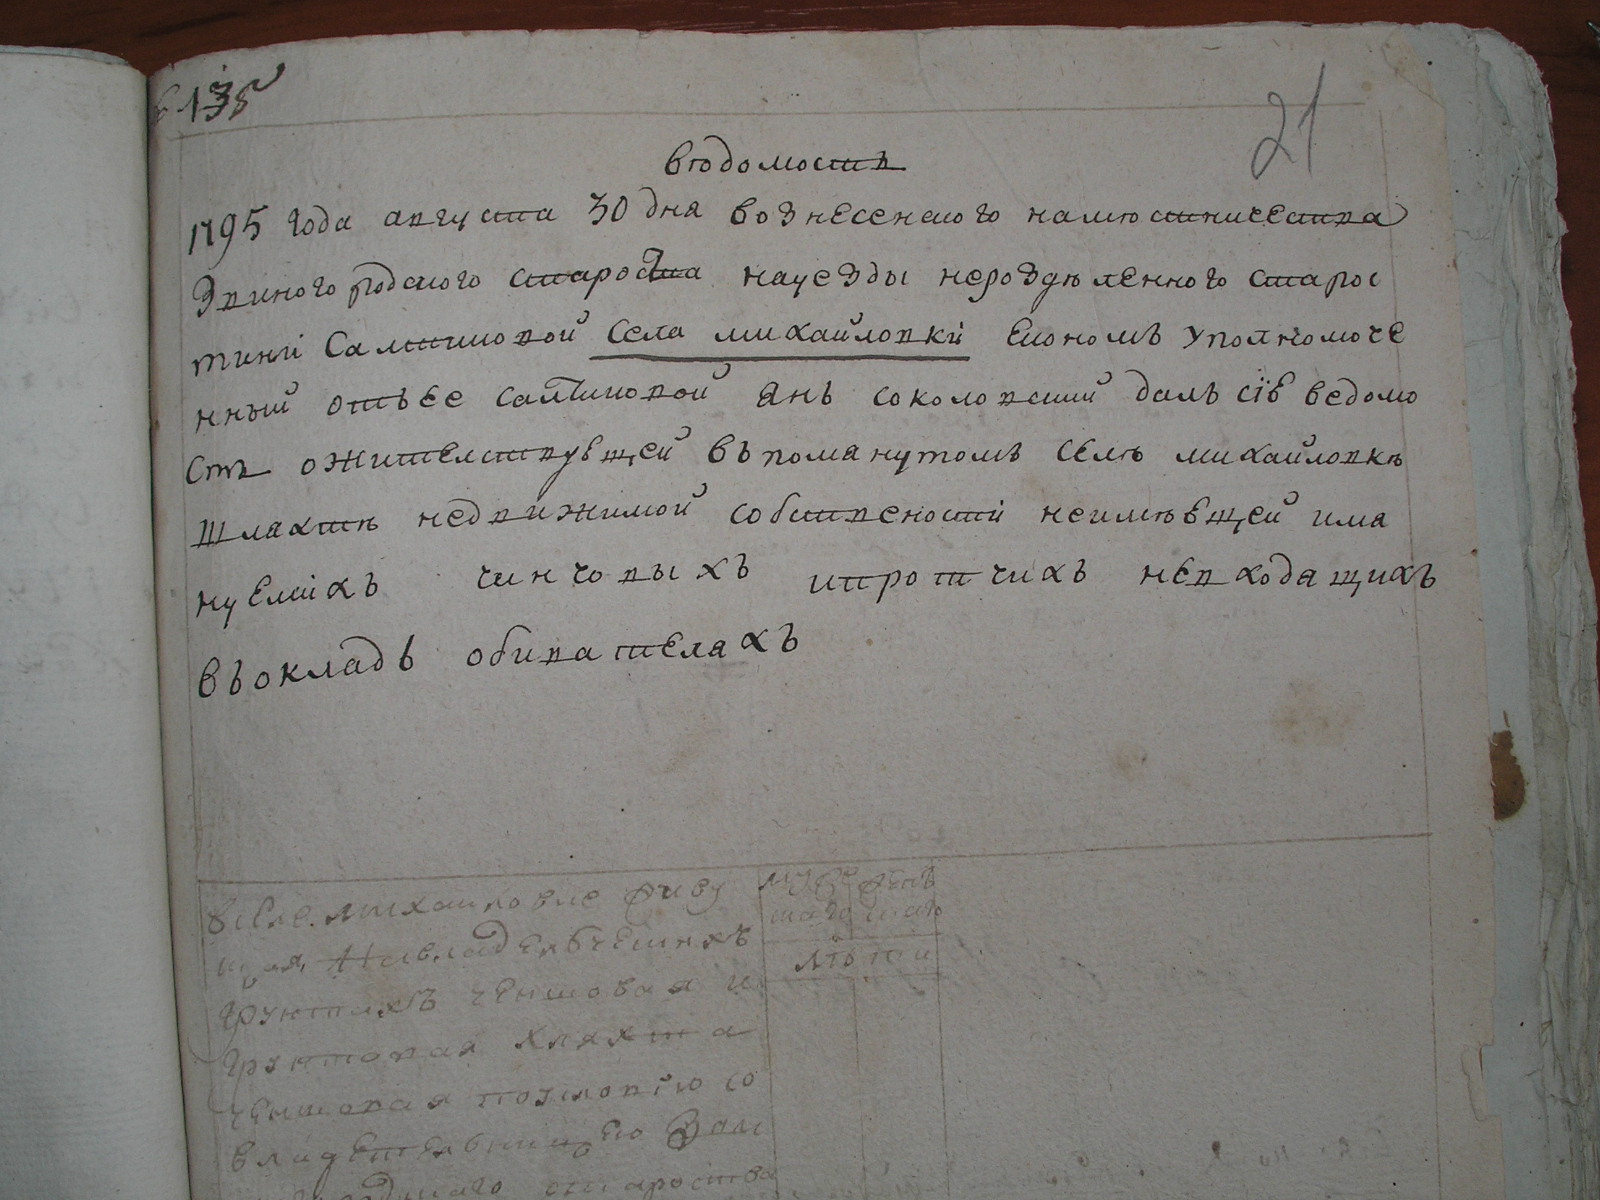 135
21
вѣдомость
1795 года августа 30 дня вознесенского намѣсничества
Звиногородского староства науезды нероздѣленного старос
тинкі Салтиковой села михайловкі Економъ уполномоче
нный отъ ее салтиковой Янъ соколовский далъ сіѣ ведомо
сть ожителствующей въпомянутомъ селѣ михайловкѣ
шляхтѣ недвижимой собствености неимѣющей имя
нуемихъ чиншовыхъ ипротчихъ невходящихъ
въокладъ обивателяхъ
Вселе михайловке живу
щая, Навладелческихъ
грунтахъ чиншовая и
грунтовая шляхта
чиншовая
староства
мужеска
лѣта